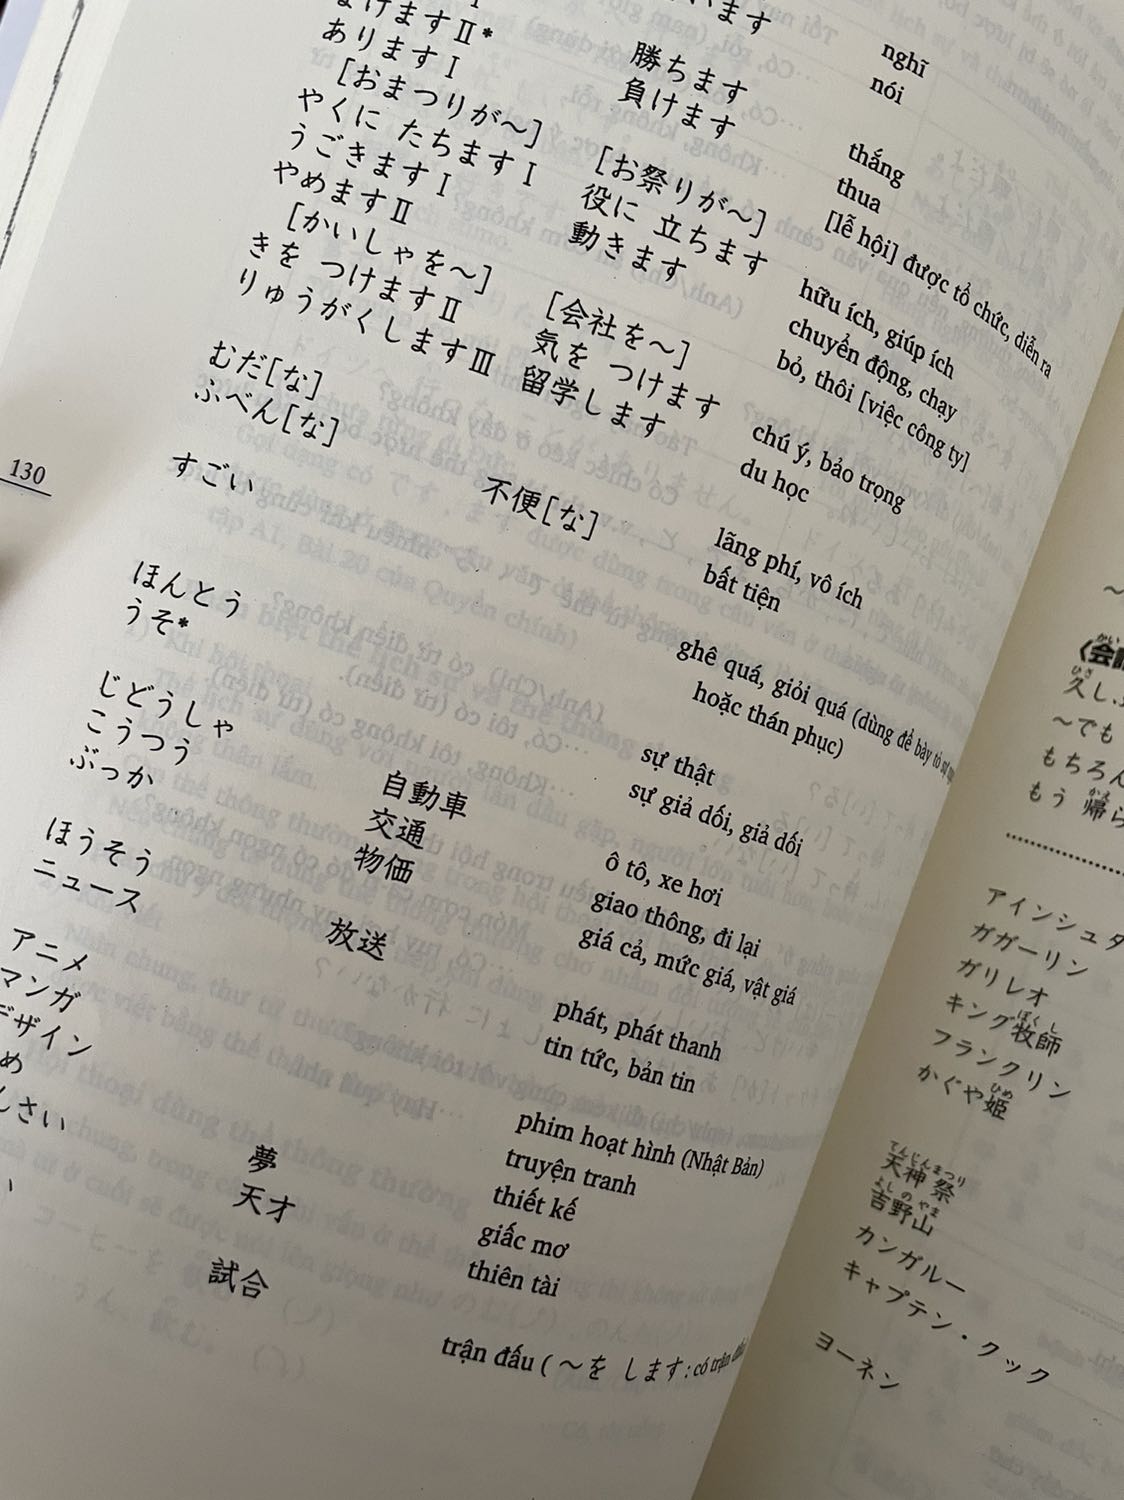 います nghĩ
nói
勝ちます thắng
まけますⅡ* 負けます thua
ありますⅠ
[おまつりが～] [お祭りが～] [lễ hội] được tổ chức, diễn ra
やくに たちますⅠ 役に 立ちます hữu ích, giúp ích
うごきますⅠ 動きます chuyển động, chạy
やめますⅡ bỏ, thôi [việc công ty]
[かいしゃを～] [会社を～]
きを つけますⅡ 気を つけます chú ý, bảo trọng
りゅうがくしますⅢ 留学します du học
むだ[な] lãng phí, vô ích
ふべん[な] 不便[な] bất tiện
130
すごい ghê quá, giỏi quá (dùng để bày tỏ sự
hoặc thán phục)
ほんとう sự thật
うそ* sự giả dối, giả dối
じどうしゃ 自動車 ô tô, xe hơi
こうつう 交通 giao thông, đi lại
ぶっか 物価 giá cả, mức giá, vật giá
ほうそう 放送 phát, phát thanh
ニュース tin tức, bản tin
アニメ phim hoạt hình (Nhật Bản)
マンガ truyện tranh
デザイン thiết kế
め 夢 giấc mơ
さい 天才 thiên tài
試合 trận đấu ( ～を します: có trận đấu
〈会
久し
～でも
もちろん
もう 帰ら
アインシュタ
ガガーリン
ガリレオ
キング牧師
フランクリン
かぐや姫
天神祭
吉野山
カンガルー
キャプテン・クック
ヨーネン